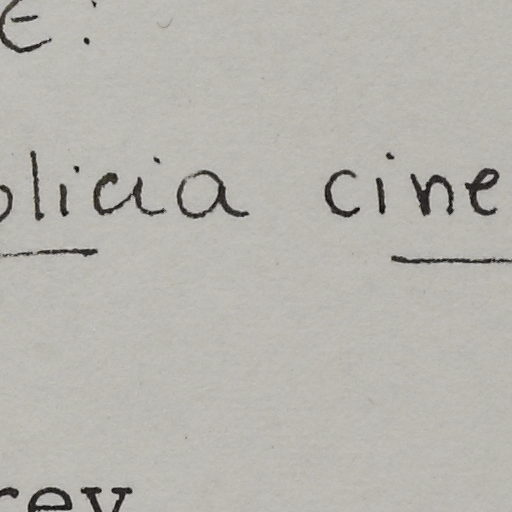 E:
olicia cine
rey